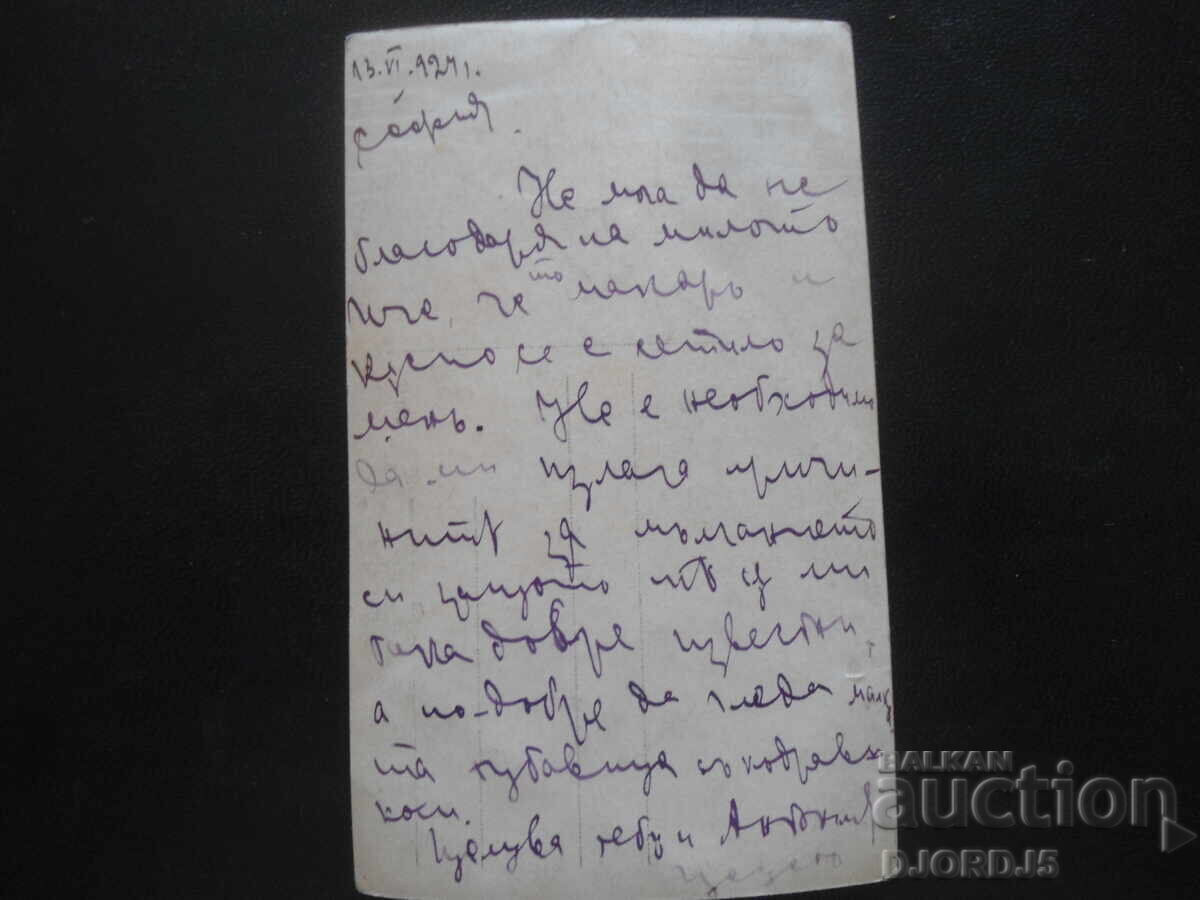 13.VI.924 г.
София.
Не мога да не
благодаря на милото
Иче, че то макаръ и
късно се е сетило за
менъ. Не е необходимо
да ми излага причи-
нитѣ за мълчанието
си защото тѣ сѫ ми
така добре известни,
а по-добре да гледа малкѫ
та хубавица съ кодравѫ
коси.
Целува тебе и
BALKAN
auction
DJORDJ5